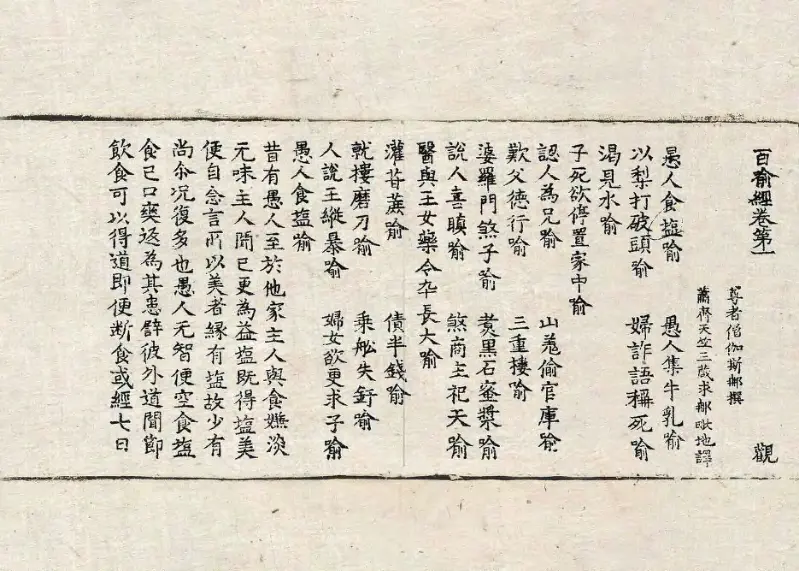 百喻經卷第一 觀
尊者僧伽斯那撰
蕭齊天竺三藏求那毗地譯
愚人食塩喻 愚人集牛乳喻
以梨打破頭喻 婦詐語稱死喻
渴見水喻
子死欲停置家中喻
認人為兄喻 山羌偷官庫喻
歎父德行喻 三重樓喻
婆羅門煞子喻 煑黑石蜜漿喻
說人喜瞋喻 煞商主祀天喻
醫與王女藥令卒長大喻
灌甘蔗喻 債半錢喻
就摟磨刀喻 乘舩失釪喻
人說王縱暴喻 婦女欲更求子喻
愚人食塩喻
昔有愚人至於他家主人與食嫌淡
无味主人聞已更為益塩既得塩美
便自念言所以美者緣有塩故少有
尚尒况復多也愚人无智便空食塩
食已口爽返為其患譬彼外道聞節
飲食可以得道即便断食或經七日